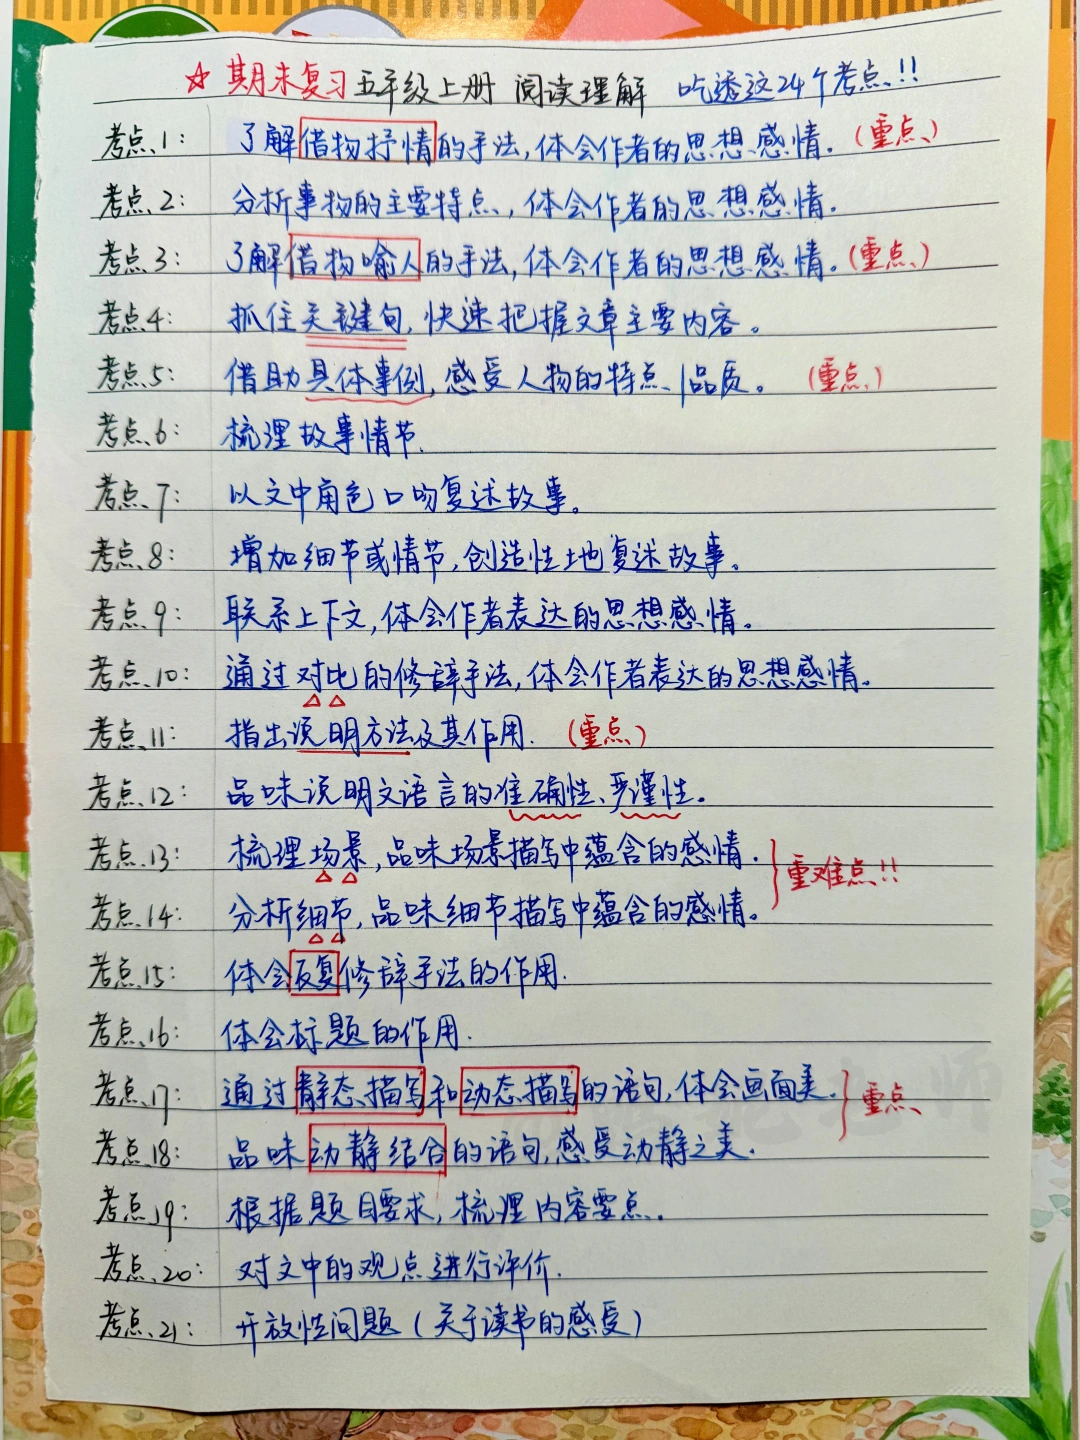 ☆ 期末复习 五年级上册 阅读理解 吃透这24个考点!!
考点1: 了解借物抒情的手法,体会作者的思想感情。(重点)
考点2: 分析事物的主要特点,体会作者的思想感情。
考点3: 了解借物喻人的手法,体会作者的思想感情。(重点)
考点4: 抓住关键句,快速把握文章主要内容。
考点5: 借助具体事例,感受人物的特点/品质。(重点)
考点6: 梳理故事情节.
考点7: 以文中角色口吻复述故事。
考点8: 增加细节或情节,创造性地复述故事。
考点9: 联系上下文,体会作者表达的思想感情。
考点10: 通过对比的修辞手法,体会作者表达的思想感情。
考点11: 指出说明方法及其作用.(重点)
考点12: 品味说明文语言的准确性、严谨性。
考点13: 梳理场景,品味场景描写中蕴含的感情.
重难点!!
考点14: 分析细节,品味细节描写中蕴含的感情。
考点15: 体会反复修辞手法的作用.
考点16: 体会标题的作用.
考点17: 通过静态描写和动态描写的语句,体会画面美.
重点
考点18: 品味动静结合的语句,感受动静之美.
考点19: 根据题目要求,梳理内容要点.
考点20: 对文中的观点进行评价.
考点21: 开放性问题(关于读书的感受)